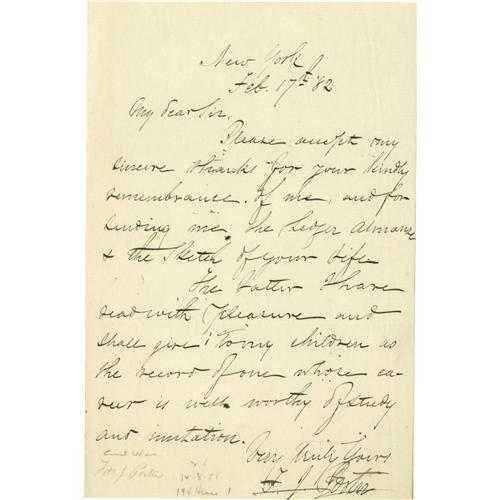 New York
Feb. 17th '82
My dear Sir,
Please accept my
sincere thanks for your kindly
remembrance of me, and for
sending me the Ledger Almanac
& the Sketch of your life
The latter I have
read with pleasure and
shall give to my children as
the record of one whose ca-
reer is well worthy of study
and imitation.
Very Truly Yours
F. J. Porter
Civil War
Fitz J Porter